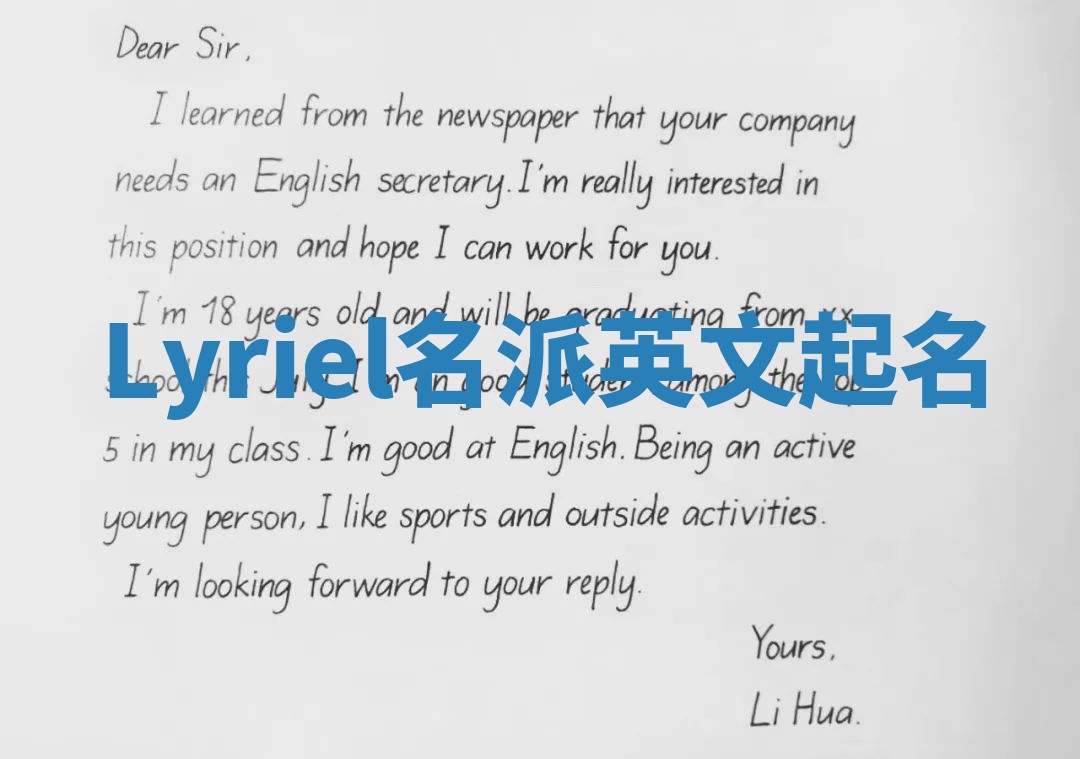 Dear Sir,
I learned from the newspaper that your company
needs an English secretary. I'm really interested in
this position and hope I can work for you.
I'm 18 years old and will be graduating from xx
Lyriel名派英文起名
school this July. I'm an good student among the top
5 in my class. I'm good at English. Being an active
young person, I like sports and outside activities.
I'm looking forward to your reply.
Yours,
Li Hua.